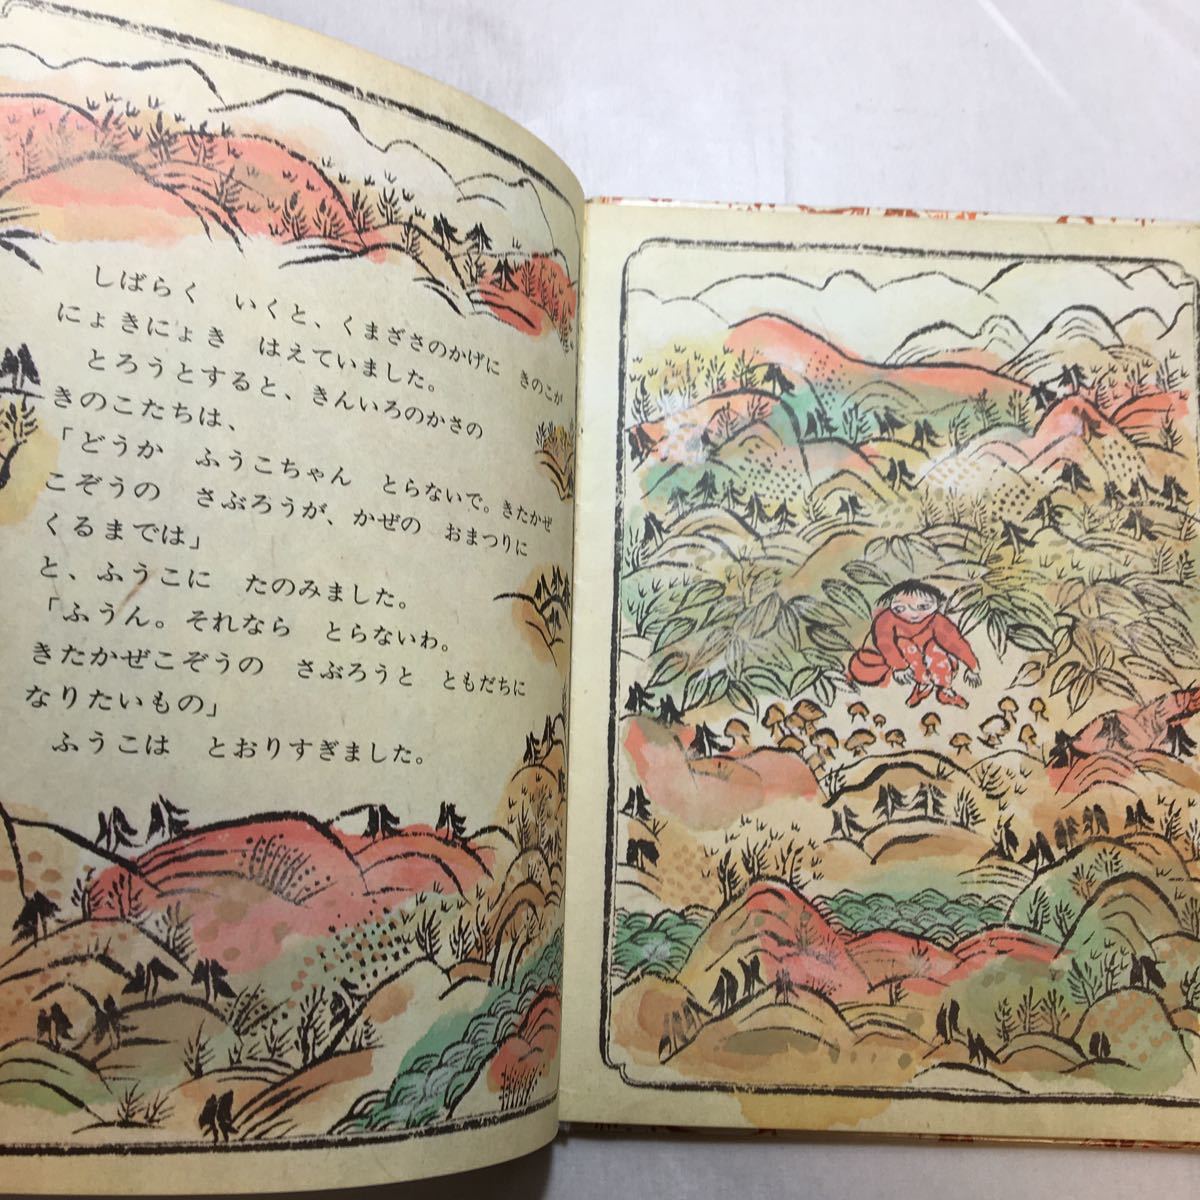 しばらく　いくと、くまざさのかげに　きのこが
にょきにょき　はえていました。
とろうとすると、きんいろのかさの
きのこたちは、
「どうか　ふうこちゃん　とらないで。きたかぜ
こぞうの　さぶろうが、かぜの　おまつりに
くるまでは」
と、ふうこに　たのみました。
「ふうん。それなら　とらないわ。
きたかぜこぞうの　さぶろうと　ともだちに
なりたいもの」
ふうこは　とおりすぎました。